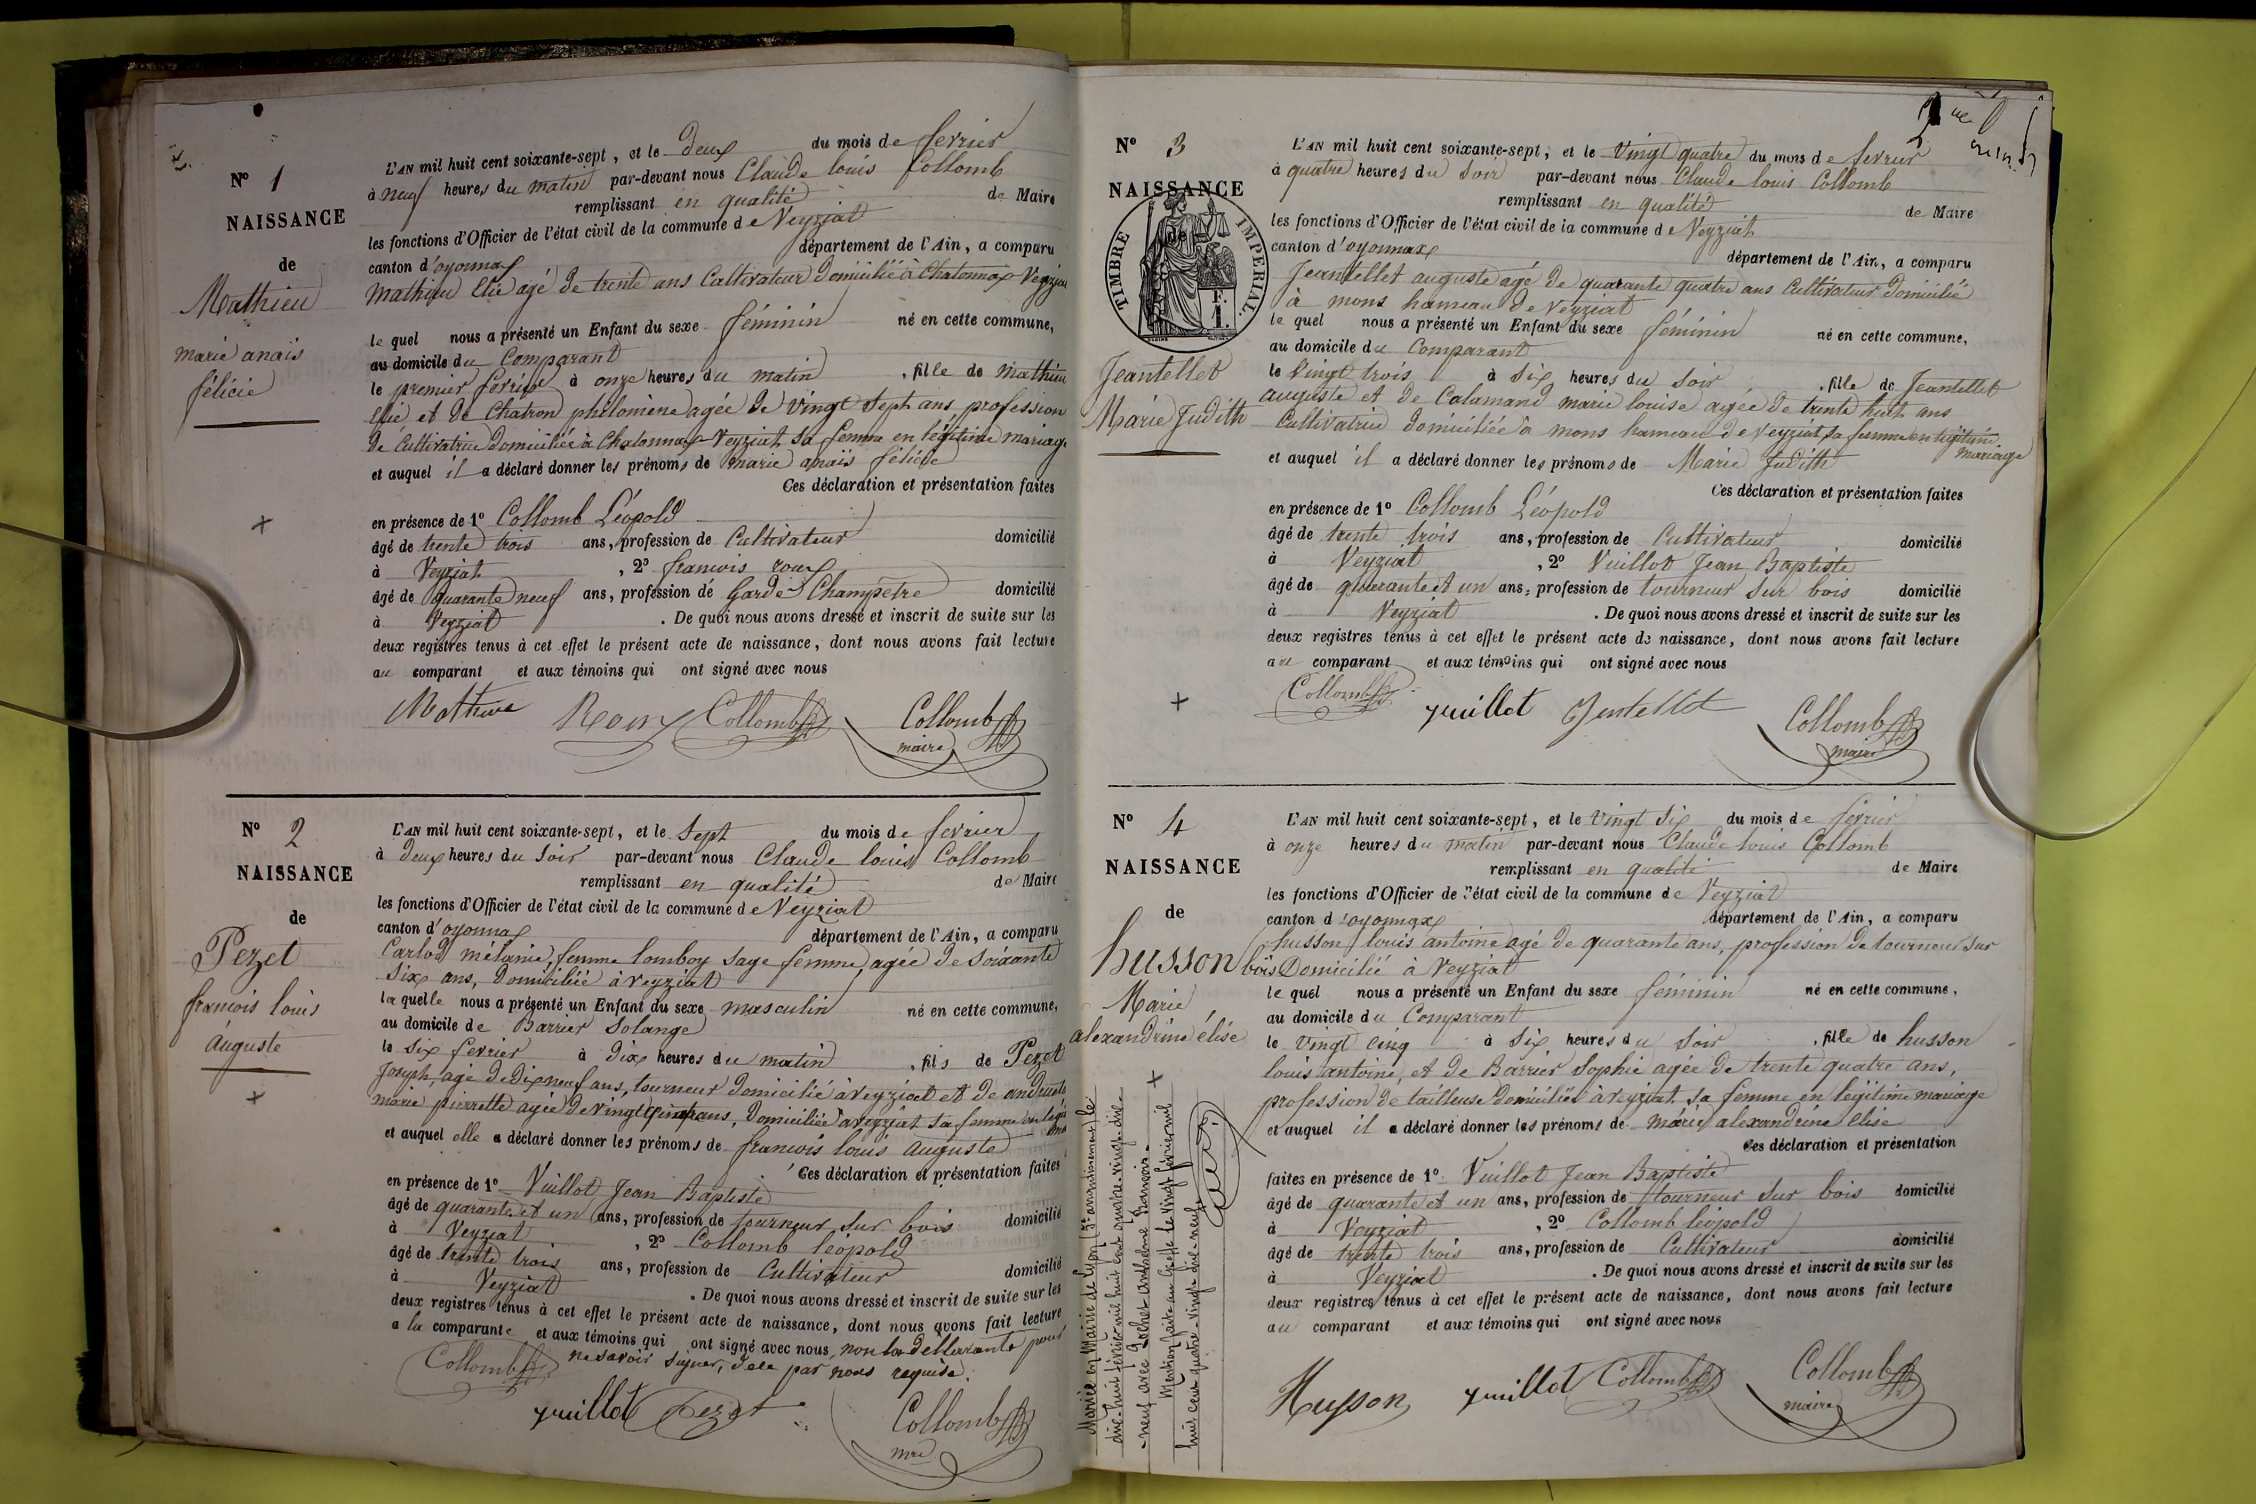 Nº 1
NAISSANCE
de
Mathieu
marie anaïs
félicie
L'AN mil huit cent soixante-sept, et le deux du mois de fevrier
à neuf heures du matin par-devant nous Claude louis Collomb
remplissant en qualité de Maire
les fonctions d'Officier de l'état civil de la commune de Veyziat
canton d'oyonnax département de l'Ain, a comparu
Mathieu Elie agé de trente ans Cultivateur Domicilié à Chatonnax Veyziat
le quel nous a présenté un Enfant du sexe féminin né en cette commune,
au domicile du Comparant
le premier fevrier à onze heures du matin, fille de Mathieu
Elie et de Chatron philomène agée de vingt sept ans profession
de Cultivatrice Domiciliée à Chatonnax Veyziat sa femme en légitime mariage
et auquel il a déclaré donner les prénoms de marie anaïs félicie
Ces déclaration et présentation faites
en présence de 1º Collomb Léopold
âgé de trente trois ans, profession de Cultivateur domicilié
à Veyziat, 2º francois roux
âgé de quarante neuf ans, profession de Garde Champêtre domicilié
à Veyziat. De quoi nous avons dressé et inscrit de suite sur les
deux registres tenus à cet effet le présent acte de naissance, dont nous avons fait lecture
au comparant et aux témoins qui ont signé avec nous
Mathieu Roux Collomb Collomb
maire
Nº 2
NAISSANCE
de
Pezet
francois louis
Auguste
L'AN mil huit cent soixante-sept, et le Sept du mois de fevrier
à deux heures du Soir par-devant nous Claude louis Collomb
remplissant en qualité de Maire
les fonctions d'Officier de l'état civil de la commune de Veyziat
canton d'oyonnax département de l'Ain, a comparu
Carlod mélanie, femme lomboy sage femme, agée de soixante
six ans, Domiciliée à veyziat
la quelle nous a présenté un Enfant du sexe masculin né en cette commune,
au domicile de Barrier Solange
le six fevrier à dix heures du matin, fils de Pezet
Joseph, agé de dix neuf ans, tourneur domicilié à veyziat et de
marie pierrette agée de vingt ans, Domiciliée à veyziat sa femme en
et auquel elle a déclaré donner les prénoms de francois louis auguste
Ces déclaration et présentation faites
en présence de 1º Vuillot Jean Baptiste
âgé de quarante et un ans, profession de tourneur sur bois domicilié
à Veyziat, 2º Collomb léopold
âgé de trente trois ans, profession de Cultivateur domicilié
à Veyziat. De quoi nous avons dressé et inscrit de suite sur les
deux registres tenus à cet effet le présent acte de naissance, dont nous avons fait lecture
a la comparante et aux témoins qui ont signé avec nous, non la déllarante pour
ne savoir signer, de ce par nous requise.
Collomb
vuillot Pezet Collomb
mre
Nº 3
NAISSANCE
de
TIMBRE IMPERIAL.
F.
1.
Jeantellet
Marie Judith
L'AN mil huit cent soixante-sept, et le vingt quatre du mois de fevrier
à quatre heures du soir par-devant nous Claude louis Collomb
remplissant en qualité de Maire
les fonctions d'Officier de l'état civil de la commune de Veyziat
canton d'oyonnax département de l'Ain, a comparu
Jeantellet auguste agé de quarante quatre ans Cultivateur Domicilié
à mons hameau de Veyziat
le quel nous a présenté un Enfant du sexe féminin né en cette commune,
au domicile du Comparant
le Vingt trois à six heures du soir, fille de Jeantellet
auguste et de Calamand marie louise agée de trente huit ans
Cultivatrice domiciliée à mons hameau de Veyziat sa femme en légitime
mariage
et auquel il a déclaré donner les prénoms de Marie Judith
Ces déclaration et présentation faites
en présence de 1º Collomb Léopold
âgé de trente trois ans, profession de Cultivateur domicilié
à Veyziat, 2º Vuillot Jean Baptiste
âgé de quarante et un ans, profession de tourneur sur bois domicilié
à Veyziat. De quoi nous avons dressé et inscrit de suite sur les
deux registres tenus à cet effet le présent acte de naissance, dont nous avons fait lecture
au comparant et aux témoins qui ont signé avec nous
Collomb vuillot Jentellet Collomb
maire
Nº 4
NAISSANCE
de
husson
Marie
alexandrine élise
L'AN mil huit cent soixante-sept, et le vingt six du mois de février
à onze heures du matin par-devant nous Claude louis Collomb
remplissant en qualité de Maire
les fonctions d'Officier de l'état civil de la commune de Veyziat
canton d'oyonnax département de l'Ain, a comparu
husson louis antoine agé de quarante ans, profession de tourneur sur
bois Domicilié à Veyziat
le quel nous a présenté un Enfant du sexe féminin né en cette commune,
au domicile du Comparant
le vingt cinq à six heures du soir, fille de husson
louis antoine, et de Barrier Sophie agée de trente quatre ans,
profession de tailleuse domiciliée à veyziat sa femme en légitime mariage
et auquel il a déclaré donner les prénoms de marie alexandrine élise
Ces déclaration et présentation
faites en présence de 1º Vuillot Jean Baptiste
âgé de quarante et un ans, profession de tourneur sur bois domicilié
à Veyziat, 2º Collomb léopold
âgé de trente trois ans, profession de Cultivateur domicilié
à Veyziat. De quoi nous avons dressé et inscrit de suite sur les
deux registres tenus à cet effet le présent acte de naissance, dont nous avons fait lecture
au comparant et aux témoins qui ont signé avec nous
Husson vuillot Collomb Collomb
maire
Mariée en Mairie de Lyon (3e arrondissement) le
dix-huit février mil huit cent quatre-vingt-dix-
-neuf avec Lochet anthelme François.-
Mention faite au Greffe le vingt février mil
huit cent quatre-vingt-dix-neuf